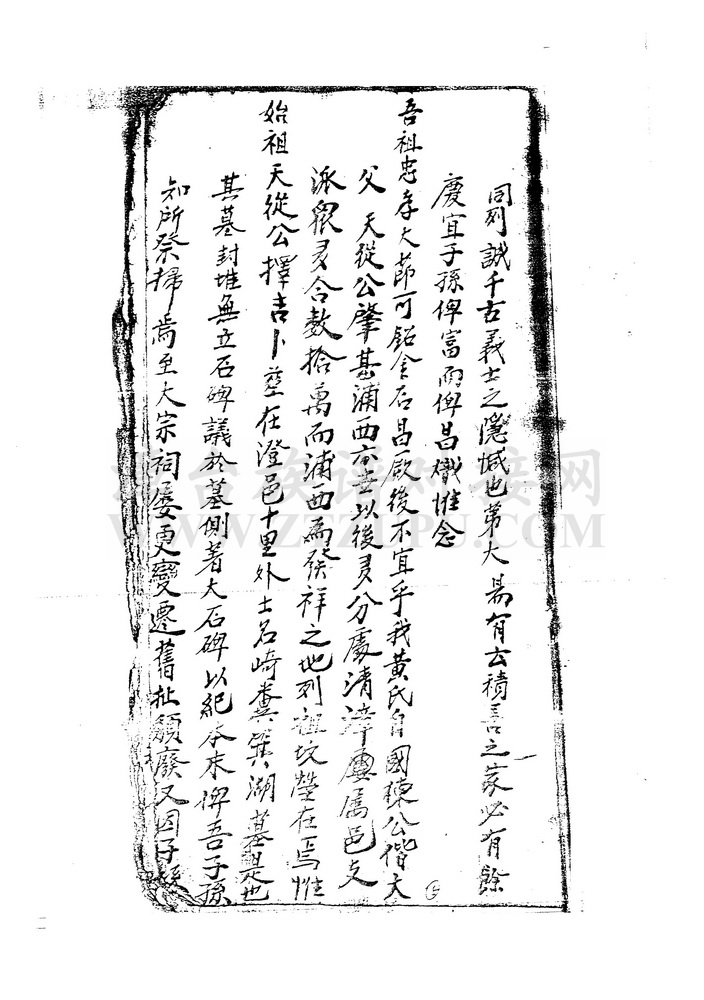 同列誠千古義士之隱憾也第大易有云積善之家必有餘
慶宜子孫俾富而俾昌熾惟念
吾祖忠孝大節可銘金石昌厥後不宜乎我黃氏自國棟公偕大
父天從公肇基浦西亦世以後多分處清漳屬邑支
派衆多合數拾萬而浦西為發祥之地列祖坟塋在焉惟
始祖天從公擇吉卜塟在澄邑十里外土名崎糞箕湖墓是也
其墓封堆無立石碑議於墓側著大石碑以紀本末俾吾子孫
知所祭掃焉至大宗祠屡更變遷舊址頹廢又因子孫
台族谱对接网
WWW.ZTZUPU.COM